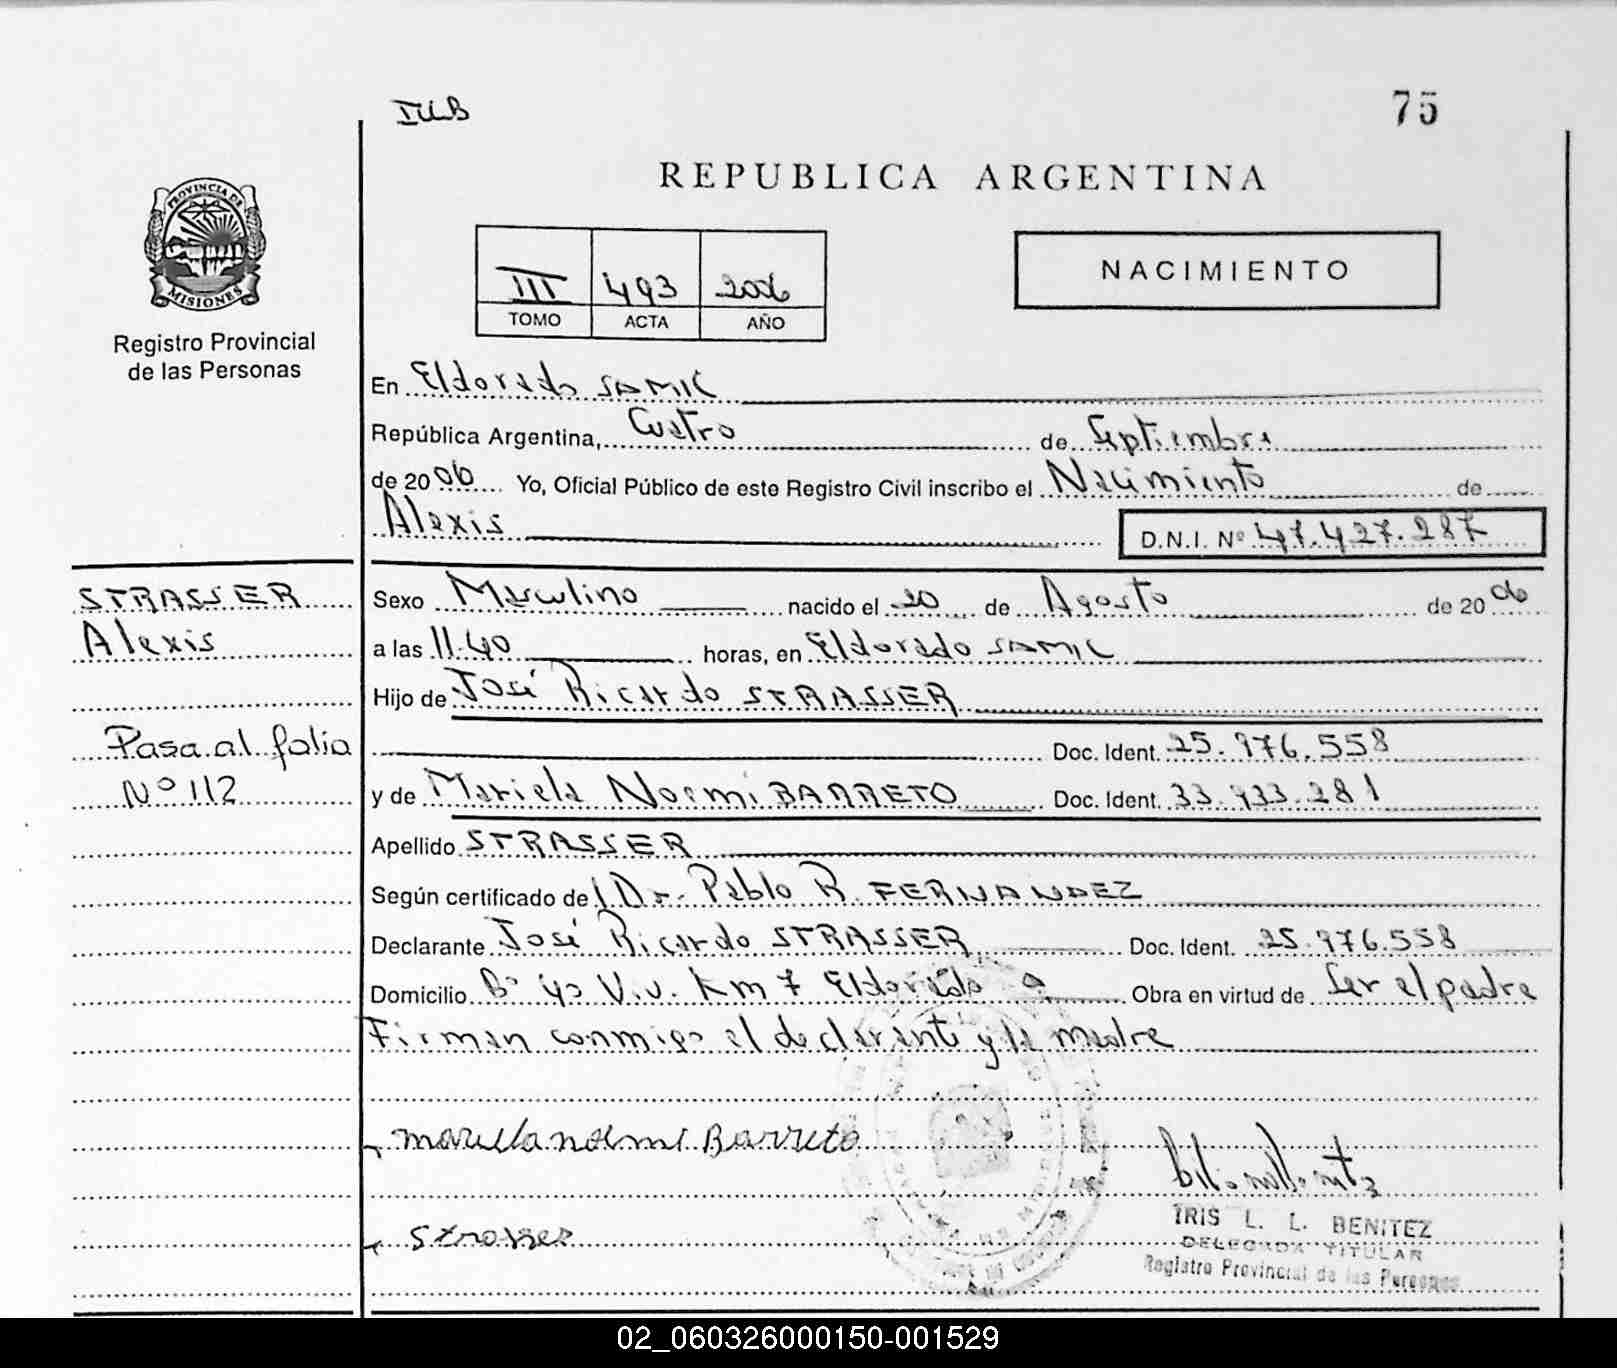 75
PROVINCIA DE
MISIONES
Registro Provincial
de las Personas
REPUBLICA ARGENTINA
III 493 2006
TOMO ACTA AÑO
NACIMIENTO
En Eldorado SAMIC
República Argentina, Cuatro de Septiembre
de 2006 Yo, Oficial Público de este Registro Civil inscribo el Nacimiento de
Alexis D.N.I. Nº 47.427.287
STRASSER
Alexis
Pasa al folio
Nº 112
Sexo Masculino nacido el 20 de Agosto de 2006
a las 11.40 horas, en Eldorado SAMIC
Hijo de José Ricardo STRASSER
Doc. Ident. 25.976.558
y de Mariela Noemi BARRETO Doc. Ident. 33.933.281
Apellido STRASSER
Según certificado de Dr. Pablo R. FERNANDEZ
Declarante José Ricardo STRASSER Doc. Ident. 25.976.558
Domicilio Bº 40 Viv. Km 7 Eldorado Obra en virtud de Ser el padre
Firman conmigo el declarante y la madre
mariela noemi Barreto
Strasser
IRIS L. L. BENITEZ
DELEGADA TITULAR
Registro Provincial de las Personas
02_060326000150-001529